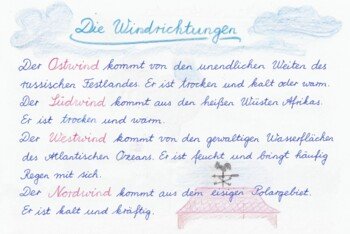 Die Windrichtungen
Der Ostwind kommt von den unendlichen Weiten des
russischen Festlandes. Er ist trocken und kalt oder warm.
Der Südwind kommt aus den heißen Wüsten Afrikas.
Er ist trocken und warm.
Der Westwind kommt von den gewaltigen Wasserflächen
des Atlantischen Ozeans. Er ist feucht und bringt häufig
Regen mit sich.
Der Nordwind kommt aus dem eisigen Polargebiet.
Er ist kalt und kräftig.